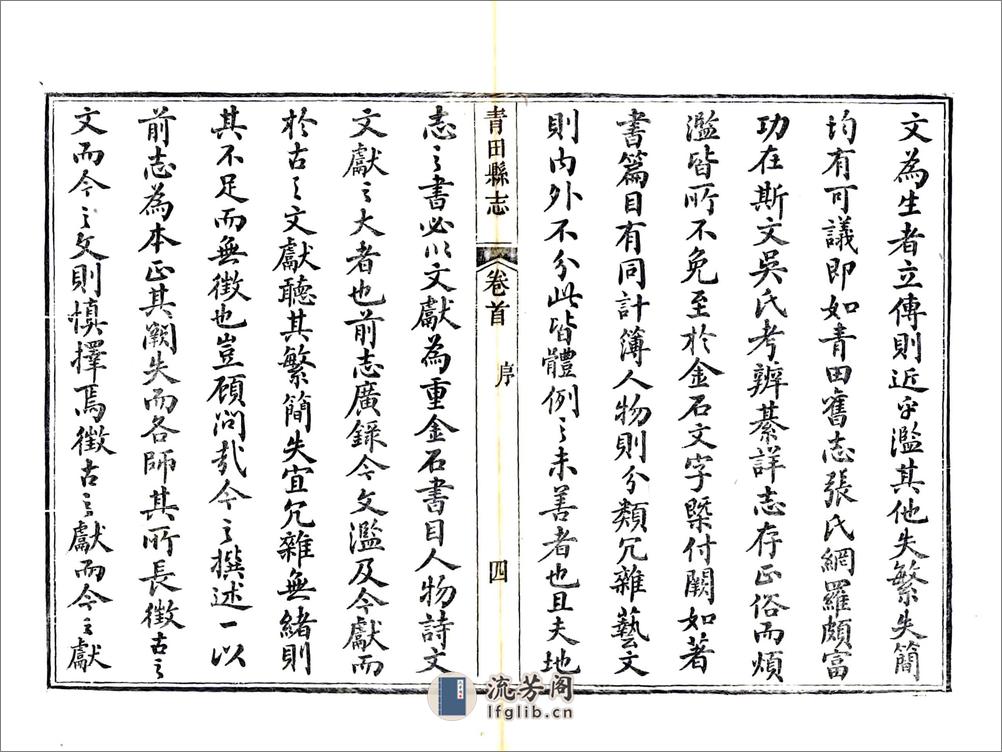 文為生者立傳則近乎濫其他失繁失簡
均有可議即如青田舊志張氏網羅頗富
功在斯文吳氏考辨綦詳志存正俗而煩
濫皆所不免至於金石文字槩付闕如著
書篇目有同計簿人物則分類冗雜藝文
則內外不分此皆體例之未善者也且夫地
青田縣志 卷首 序 四
志之書必以文獻為重金石書目人物詩文
文獻之大者也前志廣錄今文濫及今獻而
於古之文獻聽其繁簡失宜冗雜無緒則
其不足而無徵也豈顧問哉今之撰述一以
前志為本正其闕失而各師其所長徵古之
文而今之文則慎擇焉徵古之獻而今之獻
流芳阁
lfglib.cn